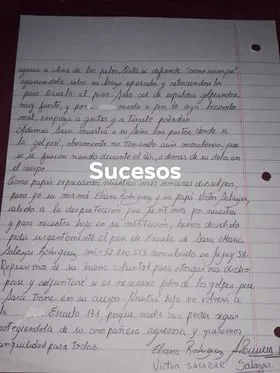 agarra a clina de los pelos, Esta se defiende "como siempre"
agarrandola sobre su brazo operado y retorciendole
para tirarla al piso. Sara cae de espaldas golpeandose
muy fuerte, y por miedo a que le siga haciendo
mal, empieza a gritar y a tirarle patadas.
Ademas Sara muestra a su seño las partes donde se
la golpeo, obviamente no tomando aun moretones, que
se le fueron dando durante el día, a demas de su dolor en
el cuerpo.
Sucesos
Como papás expresamos nuestras mas sinceras disculpas,
pero yo su mamá Eliana Rodriguez y su papá Victor Salazar,
debido a la desproteccion que sentimos por nuestra
y para nuestra hija en su institucion, hemos decidido
pedir urgentemente el pase de Escuela de Sara Maria
Salazar Rodriguez, domiciliada en Jujuy 58.
Esperamos de su buena voluntad para otorgarnos dicho
pase y adjuntarse si es necesario fotos de los golpes que
Sara tiene en su cuerpo. Nuestra hija no volverá a
la Escuela 171, porque nadie nos puede seguir
protegiendola de su compañera agresora, y queremos
tranquilidad para todos.
Eliana Rodriguez
VICTOR SALAZAR Salazar